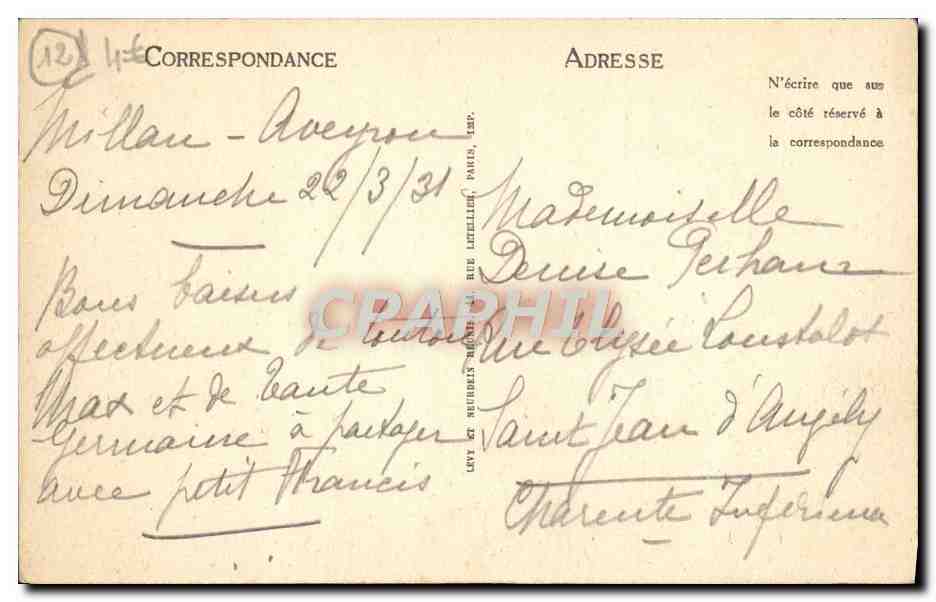 12 4€
CORRESPONDANCE
Millau - Aveyron
Dimanche 22/3/31
Bons baisers
affectueux de tonton
Max et de tante
Germaine à partager
avec petit Francis
LÉVY ET NEURDEIN RÉUNIS, RUE LETELLIER, PARIS, IMP.
CPARHIL
ADRESSE
N'écrire que sur
le côté réservé à
la correspondance
Mademoiselle
Denise
Rue Elysée Loustalot
Saint Jean d'Angély
Charente Inférieure